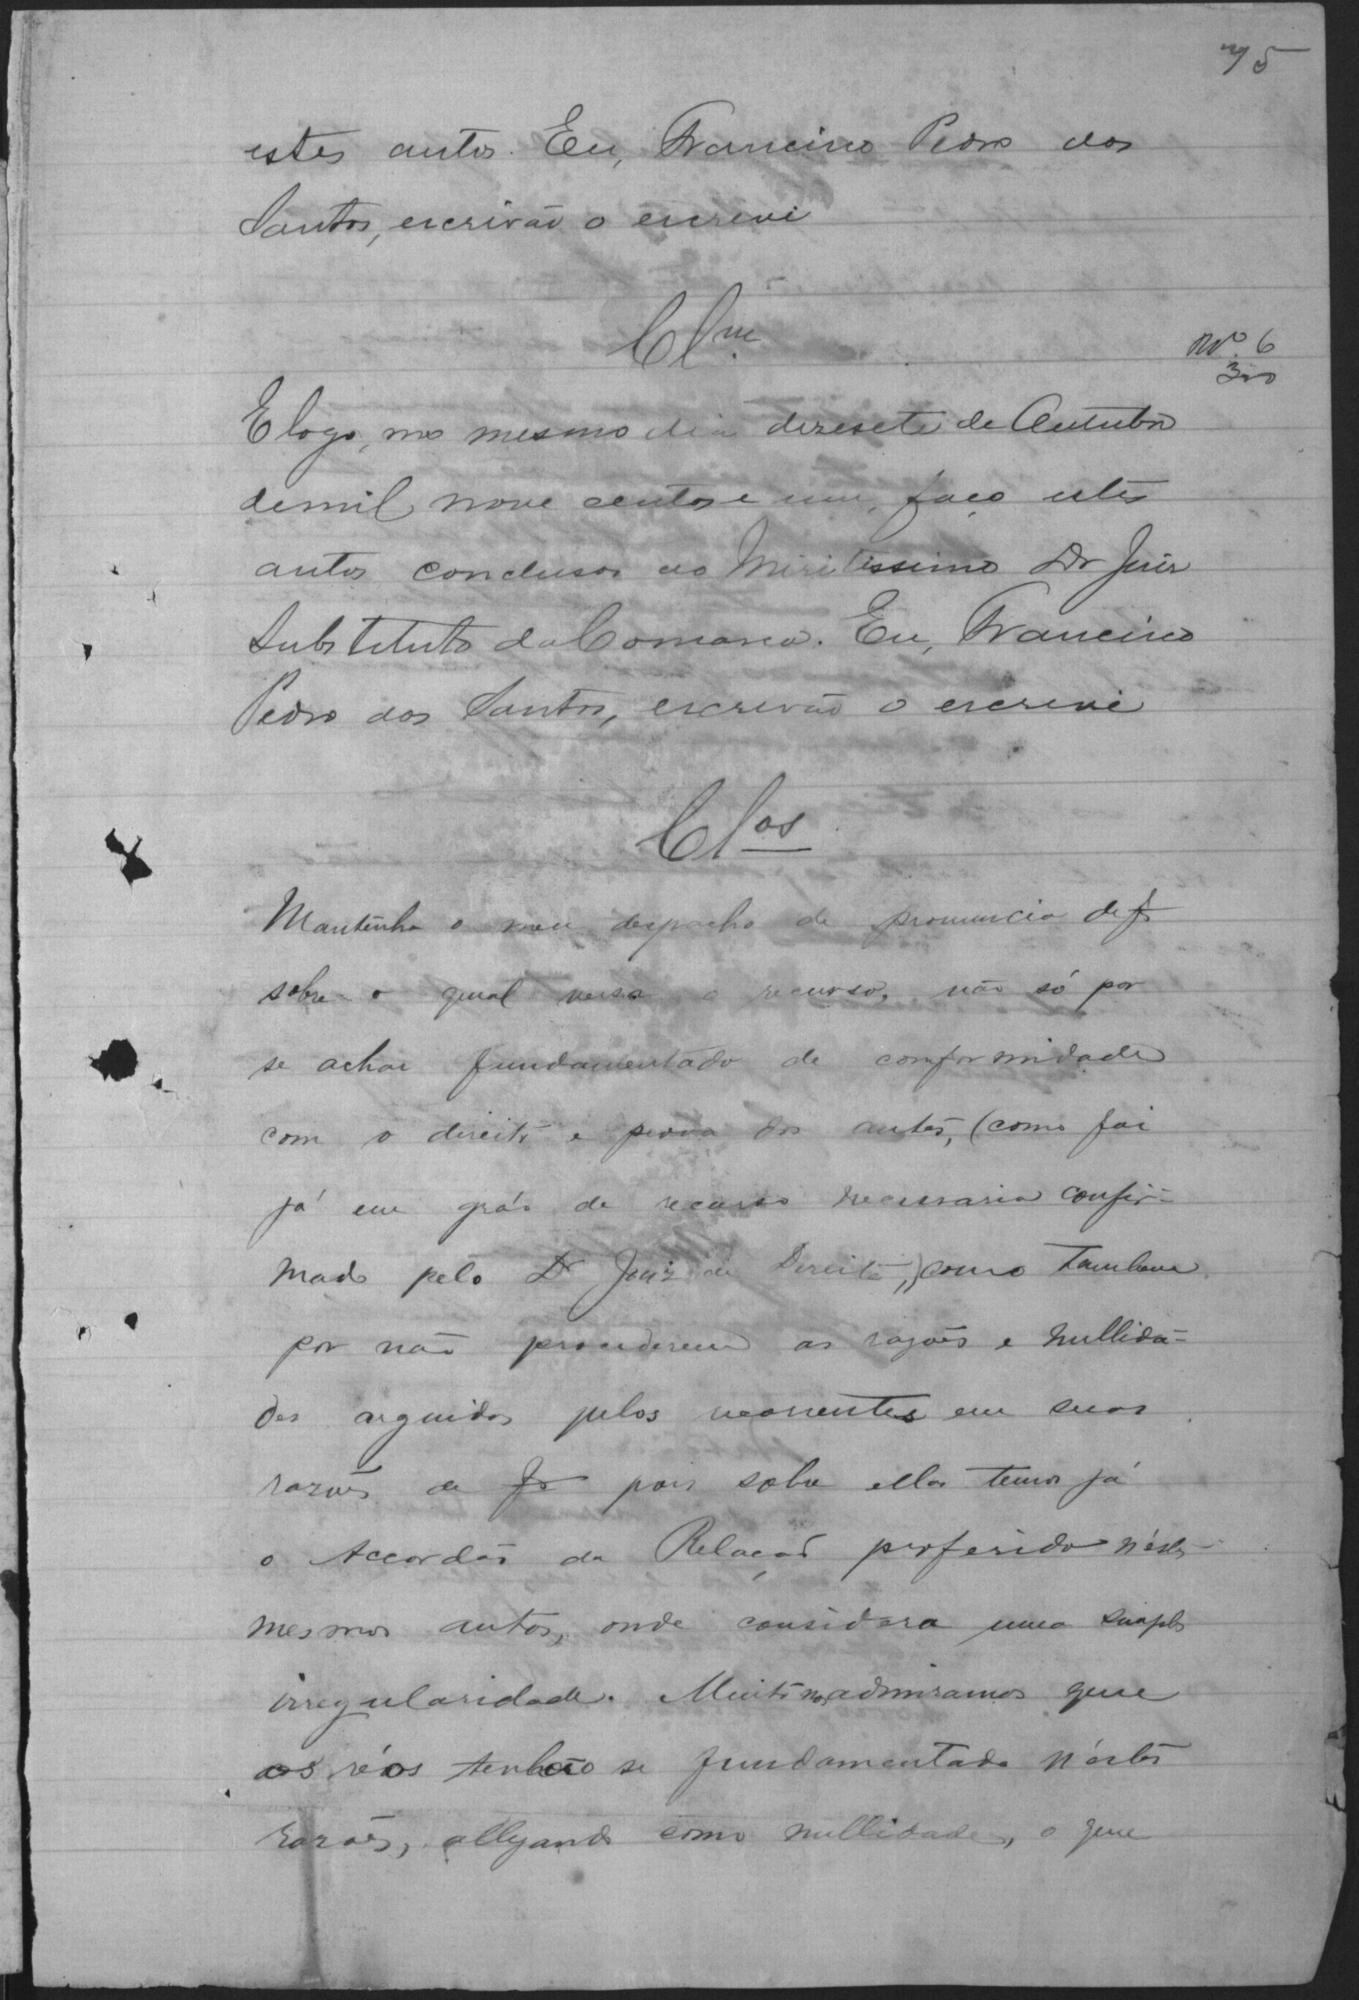 75
estes autos. Eu, Francisco Pedro dos
Santos, escrivão o escrevi
Clm
Nº. 6
300
E logo, no mesmo dia dezesete de Outubro
de mil nove centos e um, faço estes
autos conclusos ao Miritissimo Dr Juiz
Substituto da Comarca. Eu, Francisco
Pedro dos Santos, escrivão o escrevi
Clos
Mantenho o meu despacho de pronuncia de fs
sobre o qual versa o recurso, não só por
se achar fundamentado de conformidade
com o direito e prova dos autos, (como foi
já em gráo de recurso necessario confir-
mado pelo Dr Juiz de Direito,) como tambem
por não procederem as razões e nullida-
des arguidas pelos recorrentes em suas
razões de fs pois sobre ellas temos já
o Accordão da Relação proferido n'estes
mesmos autos, onde considera uma simples
irregularidade. Muito nos admiramos que
os réos tenhão se fundamentado n'estas
razões, allegando como nullidades, o que